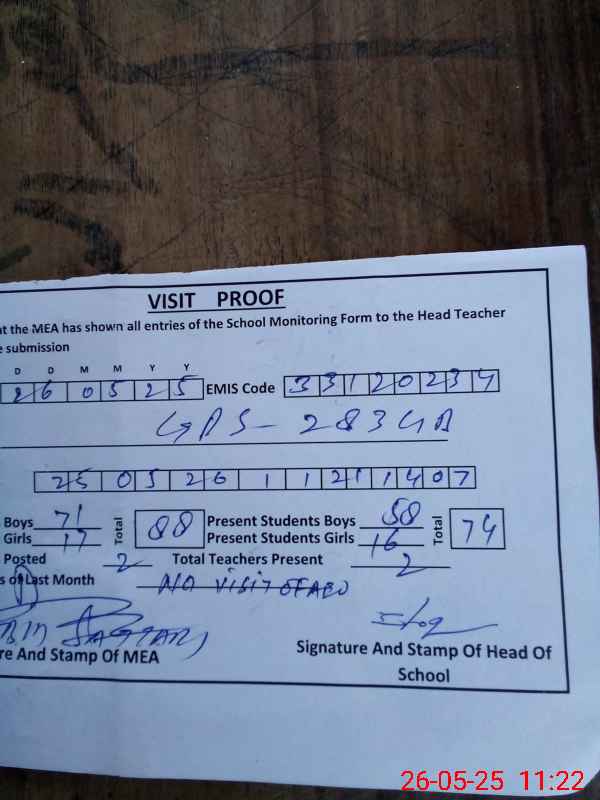 VISIT PROOF
at the MEA has shown all entries of the School Monitoring Form to the Head Teacher
e submission
D D M M Y Y
2 6 0 5 2 5 EMIS Code 3 3 1 2 0 2 3 4
GPS-283GB
2 5 0 5 2 6 1 1 2 1 1 4 0 7
Boys 71 Total 88 Present Students Boys 58 Total 74
Girls 17 Present Students Girls 16
Posted 2 Total Teachers Present 2
s of Last Month NO VISIT OF AEO
re And Stamp Of MEA
Signature And Stamp Of Head Of
School
26-05-25 11:22